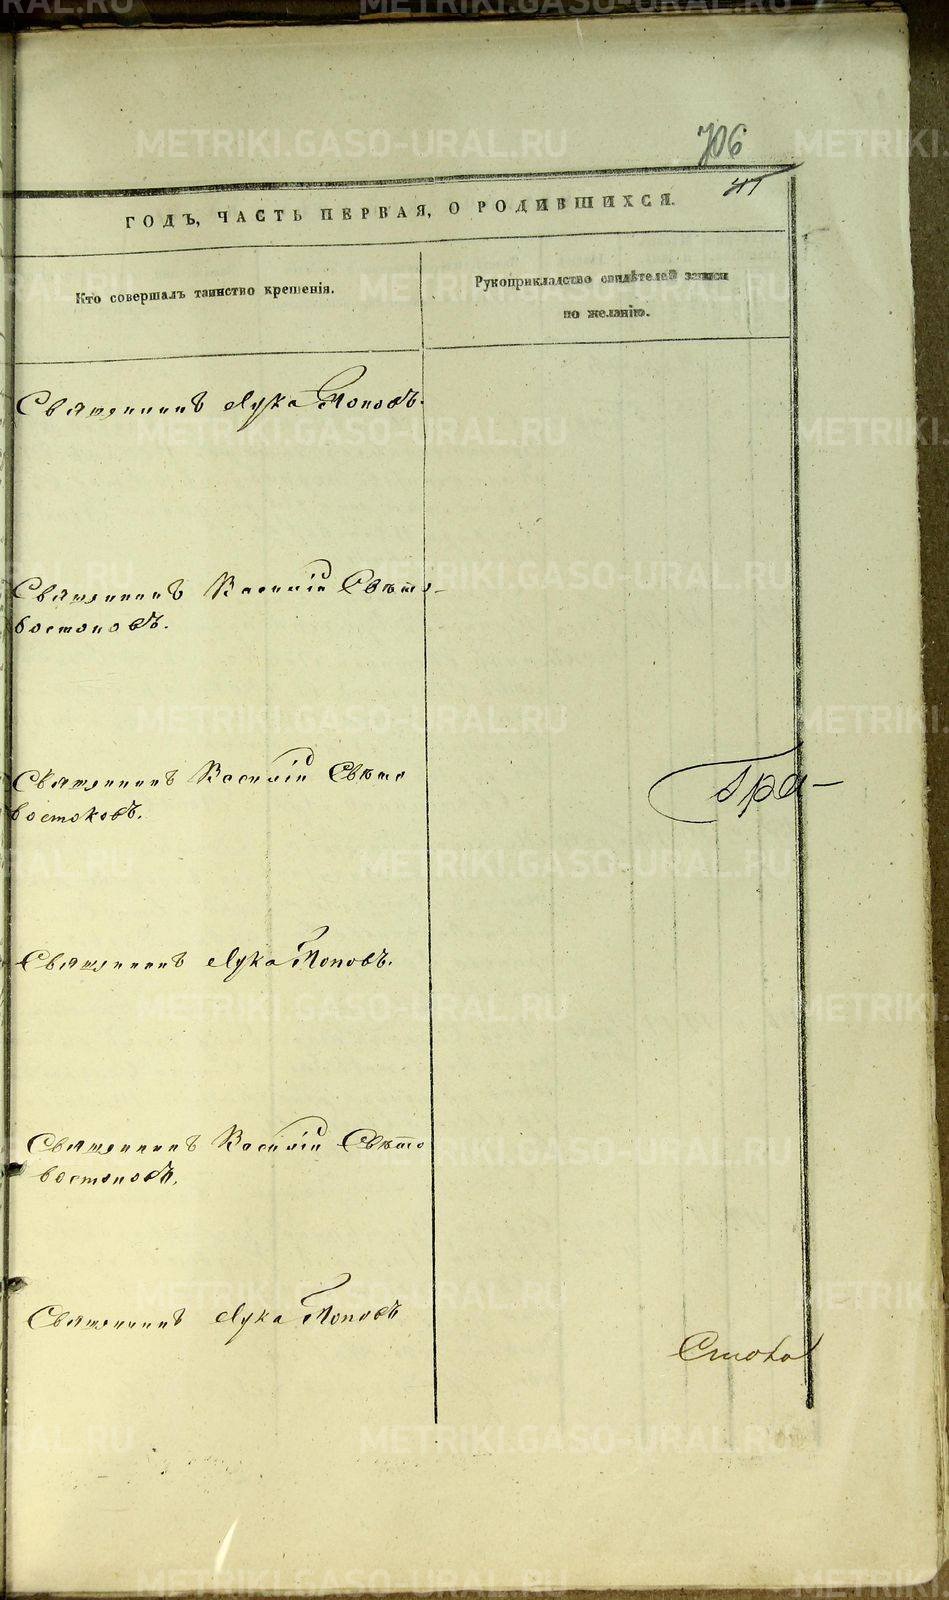 706
ГОДЪ, ЧАСТЬ ПЕРВАЯ, О РОДИВШИХСЯ.
Кто совершалъ таинство крещенія.
Рукоприкладство свидѣтелей записи
по желанію.
Священникъ Лука Поповъ.
Священникъ Василій Свѣто-
востоковъ.
Священникъ Василій Свѣто
востоковъ.
Гра-
Священникъ Лука Поповъ.
Священникъ Василій Свѣто
востоковъ.
Священникъ Лука Поповъ
METRIKI.GASO-URAL.RU